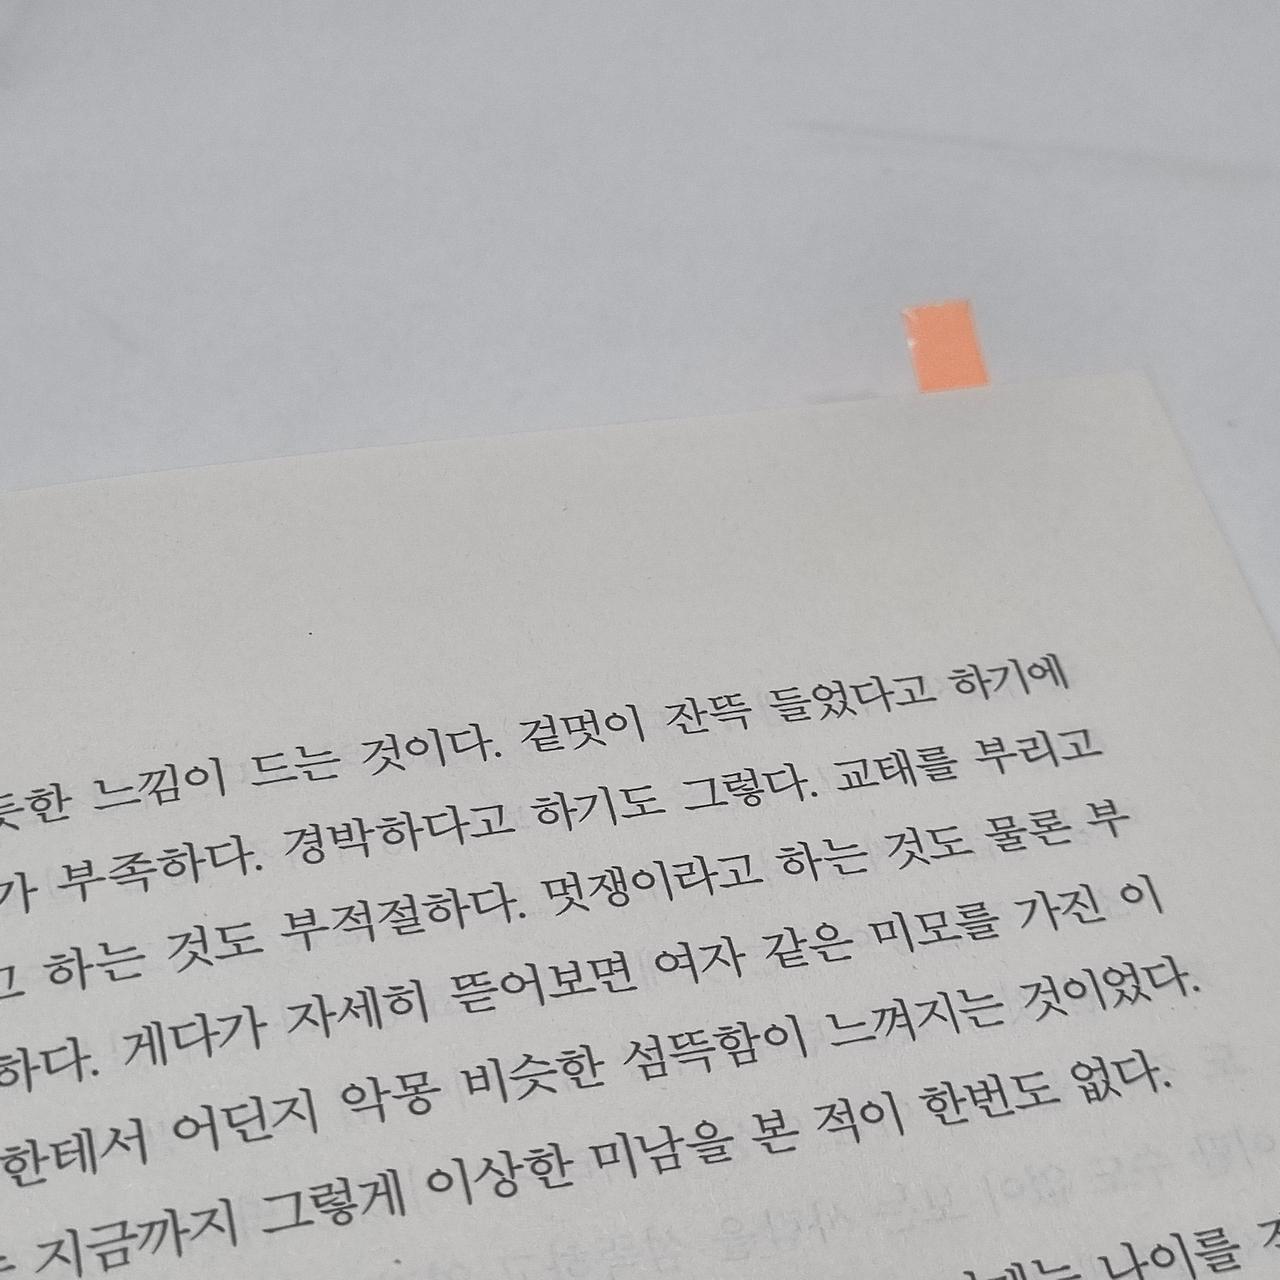 듯한 느낌이 드는 것이다. 겉멋이 잔뜩 들었다고 하기에
가 부족하다. 경박하다고 하기도 그렇다. 교태를 부리고
고 하는 것도 부적절하다. 멋쟁이라고 하는 것도 물론 부
하다. 게다가 자세히 뜯어보면 여자 같은 미모를 가진 이
한테서 어딘지 악몽 비슷한 섬뜩함이 느껴지는 것이었다.
는 지금까지 그렇게 이상한 미남을 본 적이 한번도 없다.
나이를